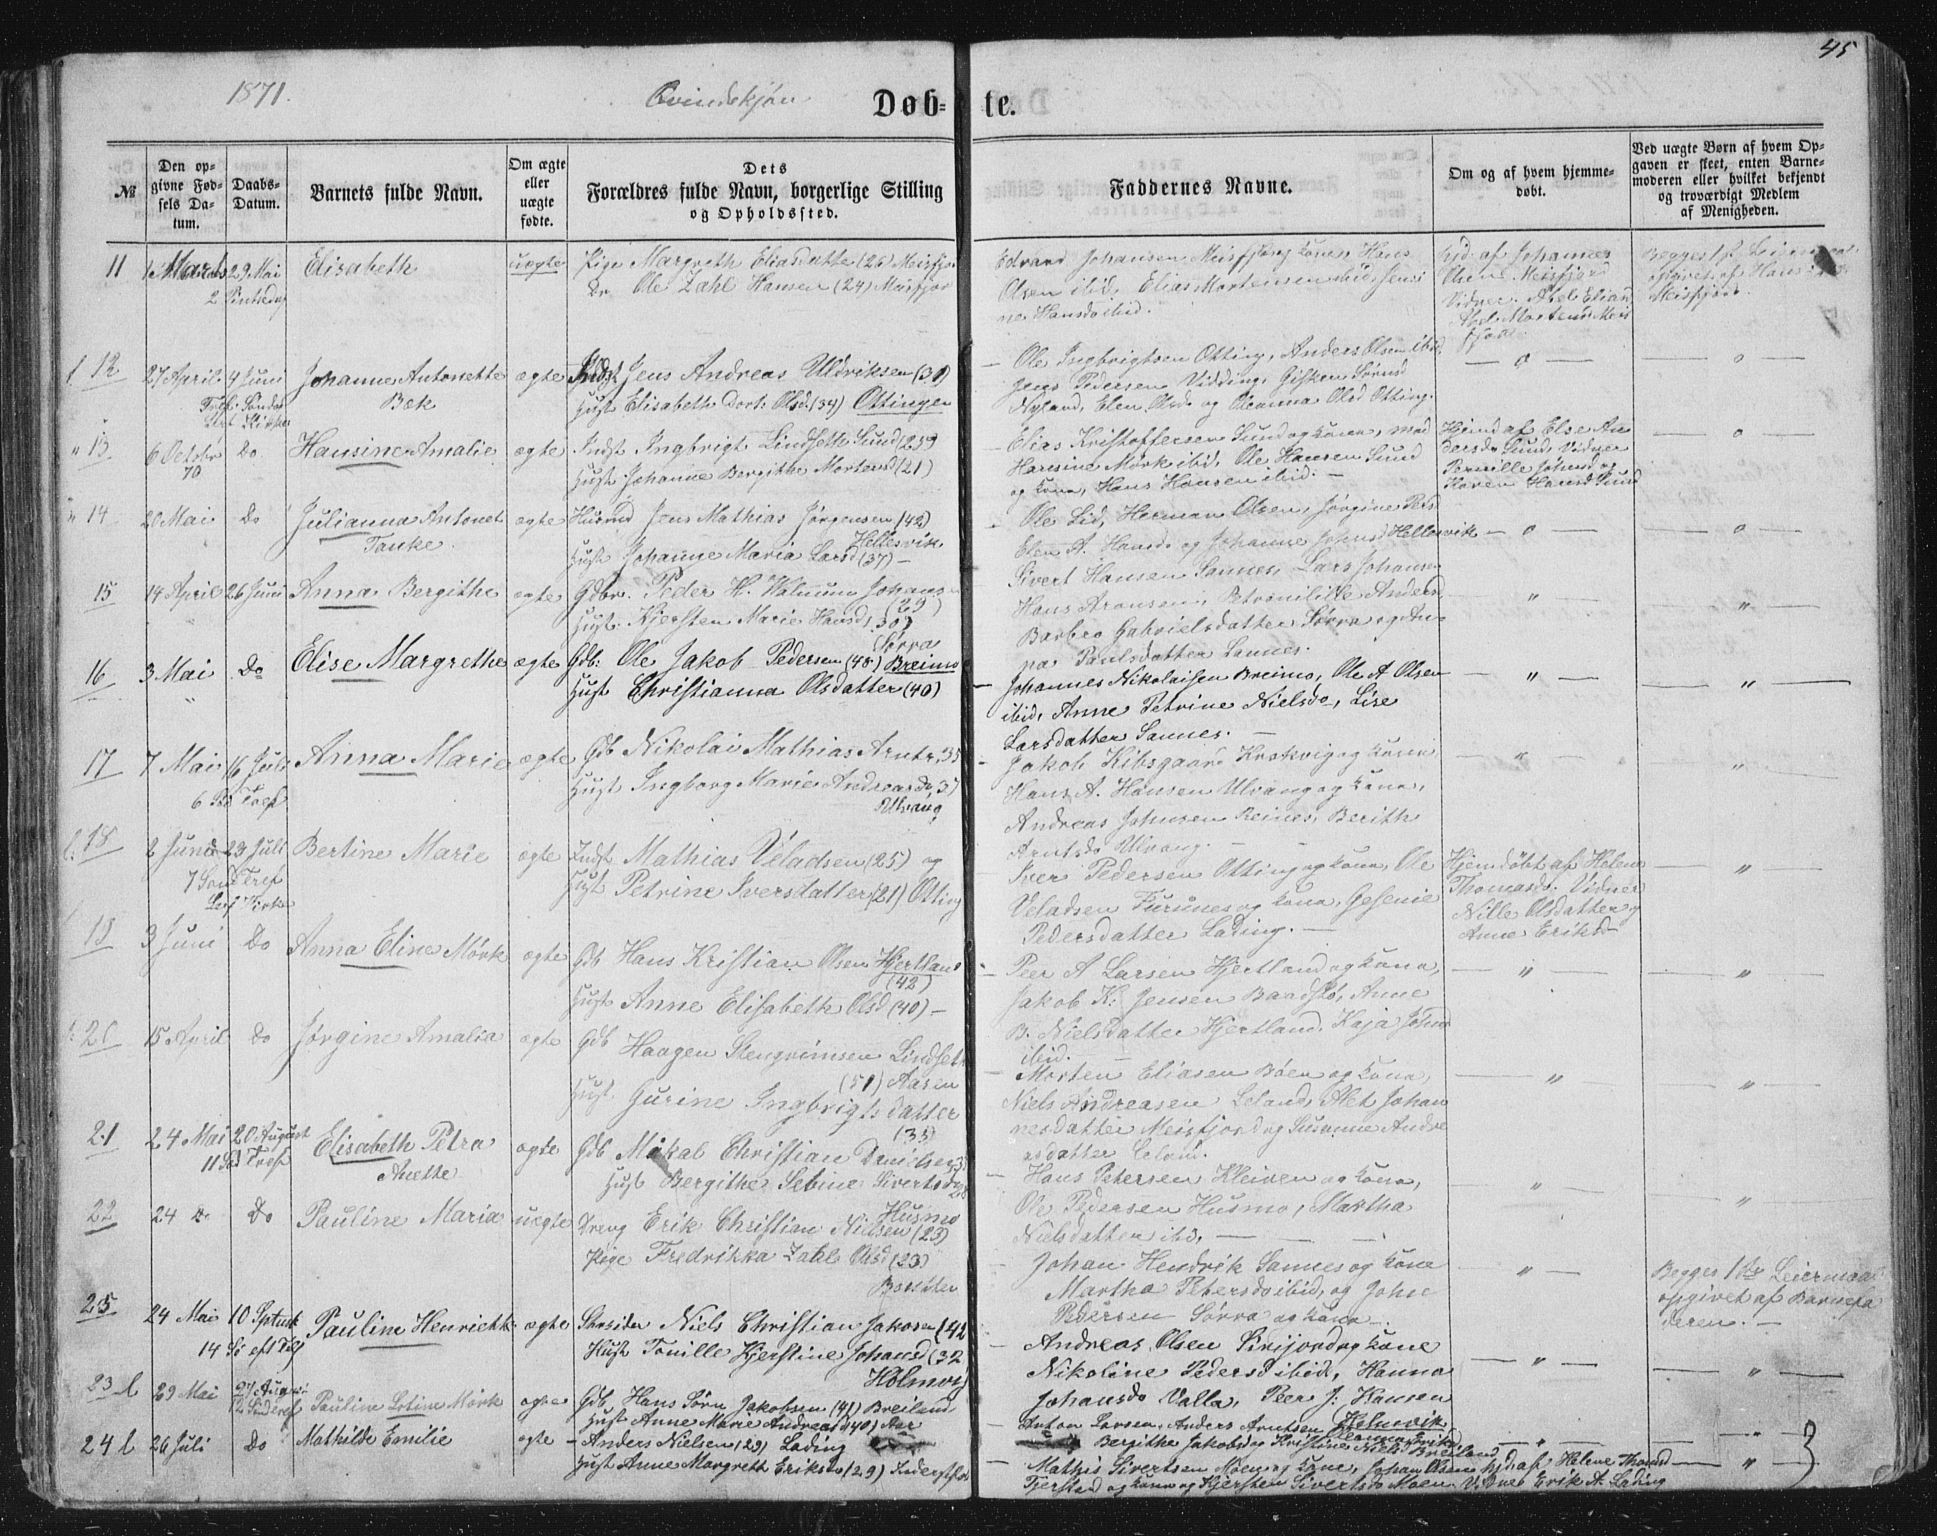 45
1871.
Qvindekjøn
Døb-
te.
№
Den op-
givne Fød-
sels Da-
tum.
Daabs-
Datum.
Barnets fulde Navn.
Om ægte
eller
uægte
fødte.
Dets
Forældres fulde Navn, borgerlige Stilling
og Opholdssted.
Faddernes Navne.
Om og af hvem hjemme-
døbt.
Ved uægte Børn af hvem Op-
gaven er skeet, enten Barne-
moderen eller hvilket bekjendt
og troværdigt Medlem
af Menigheden.
11
Marts
29 Mai
2 Pintsedag
Elisabeth
uægte
Pige Margreth Eliasdatter (26) Meisfjor
Dr Ole Zahl Hansen (24) Meisfjor
Edvard Johansen Meisfjorg Kone, Hans
Olsen ibid, Elias Mortensen ibid,
ne Hansd ibid.
hjd. af Johannes
Olsen Meisfjord
Vidner. Abel Elian
Abel Mortensd Meis
fjord
Begges 1st Leiermaal
Meisfjord
12
27 April
4 Juni
Johanne Antonette
Bæk
ægte
Indst Jens Andreas Uldriksen (31)
Hust Elisabeth Dort. Olsd. (34) Ottingen
Ole Ingbrigtsen Otting, Anders Olsen ibid,
Jens Pedersen Vidding, Gisken Sørensd
Nyland, Elen Olsd og Oleanna Olsd Otting.
— o —
— o —
13
6 Octobr
70
Do
Hansine Amalie
ægte
Indst Ingbrigt Lindseth Sund (25)
Hust Johanne Bergithe Mortensd (21)
Elias Kristoffersen Sund og Kone, mad
Hansine Mørk ibid, Ole Hansen Sund
og Kone, Hans Hansen ibid. —
Hjemd af Else An
dersd Sund, Vidner
Pernille Johnsd og
Karen Hansd Sund
— o —
14
20 Mai
Do
Julianna Antonet
Tanke
ægte
Husmd Jens Mathias Jørgensen (42)
Hellesvik
Hust Johanne Maria Larsd (37) —
Ole Lid, Herman Olsen, Jørgine Pers
Elen A. Hansd og Johanne Johnsd Hellesvik
— o —
— o —
15
14 April
26 Juni
Anna Bergithe
ægte
Gdbr. Peder H. Walnum Johans
(29)
Hust. Kjersten Marie Hansd, 30
Sørra
Sivert Hansen Sannes, Lars Johansen
Hans Aronsen, Petronilille Anders
Barbro Gabrielsdatter Sørra og An-
na Paulsdatter Sannes.
— " —
— " —
16
3 Mai
Do
Elise Margrethe
ægte
Gdb: Ole Jakob Pedersen (48) Breimo
Hust Christianna Olsdatter (40)
Johannes Nikolaisen Breimo, Ole A Olsen
ibid, Anne Petrine Nielsd, Lise
Larsdatter Sannes. —
— " —
— " —
17
7 Mai
16 Juli
6 Sø Tref
Anna Marie
ægte
Gdb Nikolai Mathias Arntz, 35
Hust Ingborg Marie Andreasd, 37
Ulvang
Jakob Kibsgaard Krokvig og Kone
Hans A. Hansen Ulvang og Kone,
Andreas Johnsen Reines, Berith
Arntsd Ulvang. —
— " —
— " —
18
2 Juni
23 Juli
7 Sønd Tref
Leif Kirke
Bertine Marie
ægte
Indst Mathias Veladsen (25) og
Hust Petrine Iversdatter (21) Otting
Iver Pedersen Otting og Kone, Ole
Veladsen Furunes og Kone, Gesenie
Pedersdatter Lading. —
Hjemdøbt af Helene
Thomasd. Vidner
Nille Olsdatter og
Anne Eriksd
— " —
18
3 Juni
Do
Anna Eline Mørk
ægte
Gdb Hans Kristian Olsen Hjertland
(42)
Hust Anne Elisabeth Olsd (40) —
Peer A Larsen Hjertland og Kone,
Jakob K. Jensen Baadstø, Anne
B. Nielsdatter Hjertland, Kaja Johnd
ibid.
— " —
— " —
20
15 April
Do
Jørgine Amalia
ægte
Gdb Haagen Stengrimsen Lindseth
(51) Aasen
Hust Gurine Ingbrigtsdatter
(35)
Morten Eliasen Bøen og Kone,
Niels Andreasen Leland, Alet Johan
nesdatter Meisfjord og Susanne Andre
asdatter Leland.
— " —
— " —
21
24 Mai
20 August
11 Sø Tref
Elisabeth Petra
Anette
ægte
Gdb Mikal Christian Danielsen
Hust Bergithe Sebine Sivertsd
Husmo
Hans Petersen Kleiven og Kone,
Ole Pedersen Husmo, Martha
Nielsdatter ibid,
— " —
— " —
22
24 Do
Do
Pauline Maria
uægte
Dreng Erik Christian Nielsen (23)
Pige Fredrikka Zahl Olsd (23)
Johan Hendrik Sannes og Kone
Martha Petersd ibid, og John
Pedersen Sørra og Kone —
— " —
Begges 1ste Leiermaal
opgivet af Barnefa
deren. —
25
24 Mai
10 Sptmb
14 Sø eft Tref
Pauline Henriette
ægte
Strsider Niels Christian Jakobsen (42
Hust Tonille Kjerstine Johansd (32
Holmvig
Andreas Olsen Sirijord og Kone
Nikoline Pedersd ibid, Hanna
Johansd Valla, Peer J. Hansen
Holmvik
— " —
— " —
23
29 Mai
27 Aug
12 Sø Tref
Pauline Lotine Mørk
ægte
Gdb. Hans Sørn Jakobsen (41) Breiland
Hust Anne Marie Andreasd (40)
Anton Larsen, Anders Arntsen
Bergithe Jakobsd og Kristine Niels Breiland
— " —
24
26 Juli
Do
Mathilde Emilie
ægte
Anders Nielsen (29) Lading
Hust Anne Margreth Eriksd (29) Inderst
Mathis Sivertsen Moen og Kone, Johan Olsen
Fjerstad og Kone og Kjersten Sivertsd Moen
hjd af Helene Thomsd
Vidner Erik A. Lading
— " —
3